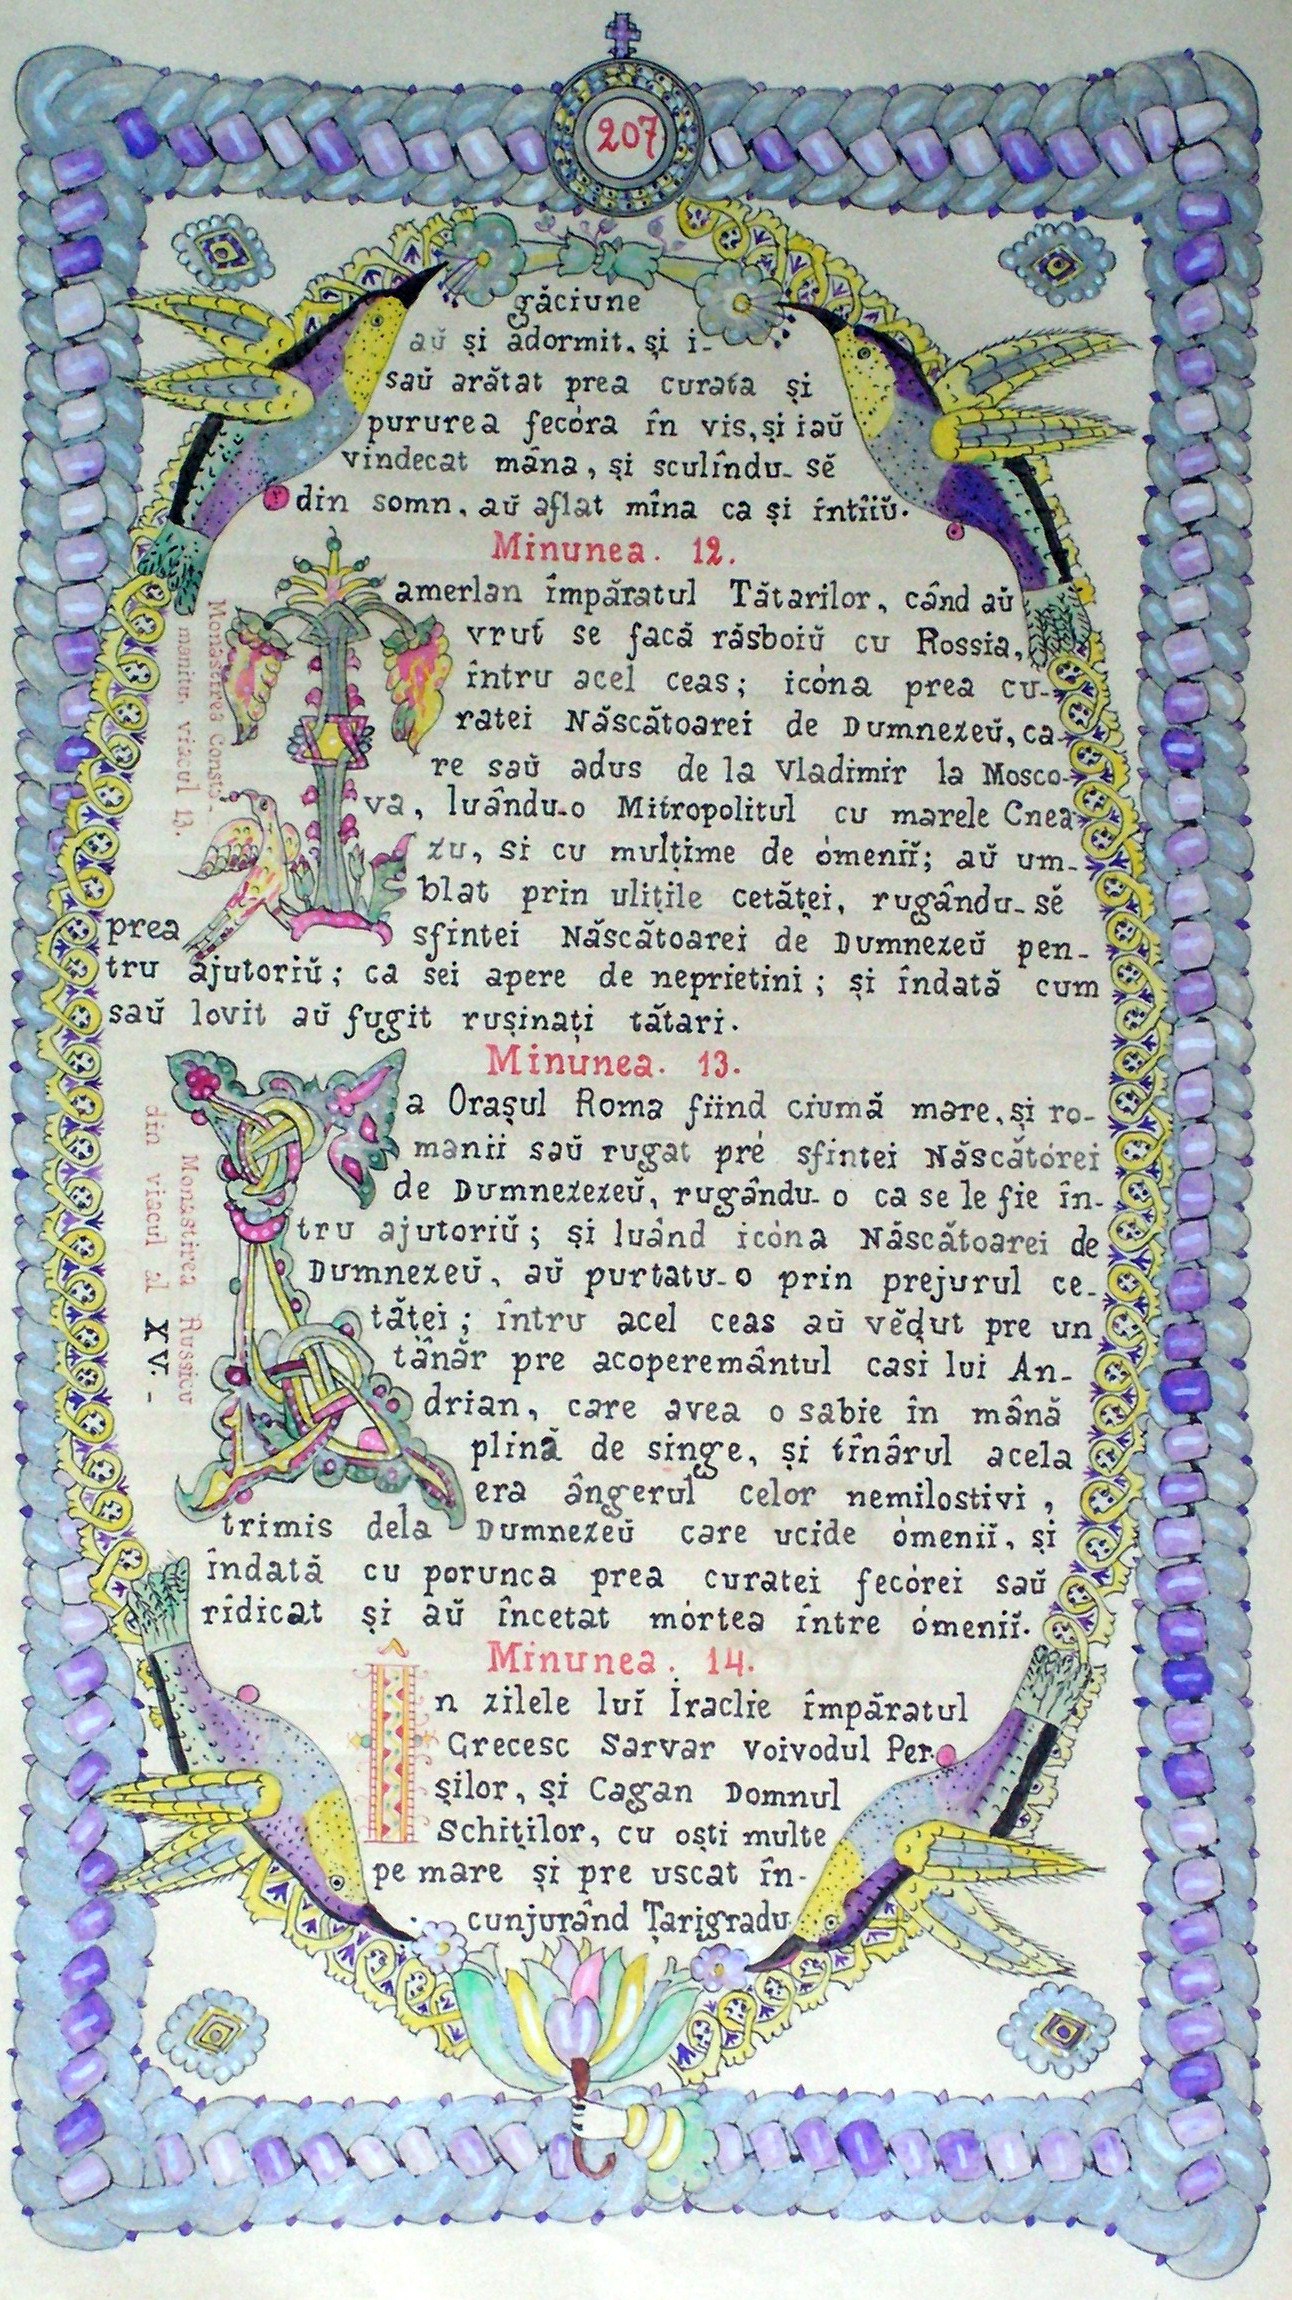 207
găciune
aŭ și adormit. și i-
saŭ arătat prea curata și
pururea fecóra în vis, și iaŭ
vindecat mâna, și sculîndu-sĕ
din somn, aŭ aflat mîna ca și întîiŭ.
Minunea. 12.
Tamerlan împăratul Tătarilor, când aŭ
vrut se facă răsboiŭ cu Rossia,
întru acel ceas; icóna prea cu-
ratei Născătoarei de Dumnezeŭ, ca-
re saŭ adus de la Vladimir la Mosco-
va, luându-o Mitropolitul cu marele Cnea
zu, si cu mulțime de ómenii; aŭ um-
blat prin ulițile cetăței, rugându-sĕ
prea sfintei Născătoarei de Dumnezeŭ pen-
tru ajutoriŭ; ca sei apere de neprietini; și îndată cum
saŭ lovit aŭ fugit rușinați tătari.
Monastirea Consta-
manitu, viacul 13.
Minunea. 13.
La Orașul Roma fiind ciumă mare, și ro-
manii saŭ rugat pré sfintei Născătórei
de Dumnezezeŭ, rugându-o ca se le fie în-
tru ajutoriŭ; și luând icóna Născătoarei de
Dumnezeŭ, aŭ purtatu-o prin prejurul ce-
tăței; întru acel ceas aŭ vĕḑut pre un
tânăr pre acoperemântul casi lui An-
drian, care avea o sabie în mână
plină de singe, și tînârul acela
era ângerul celor nemilostivi,
trimis dela Dumnezeŭ care ucide ómenii, și
îndată cu porunca prea curatei fecórei saŭ
rîdicat și aŭ încetat mórtea între ómenii.
Monastirea Russicu
din viacul al XV.-
Minunea. 14.
În zilele luĭ Iraclie împăratul
Grecesc Sarvar voivodul Per-
șilor, și Cagan Domnul
Schiților, cu oști multe
pe mare și pre uscat în-
cunjurând Țarigradu